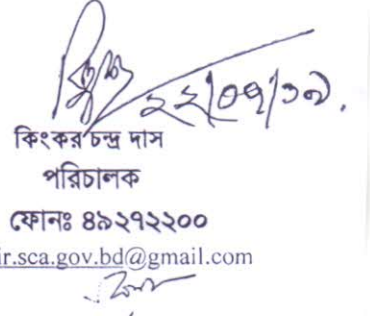 ২২|০৭|১৯.
কিংকর চন্দ্র দাস
পরিচালক
ফোনঃ ৪৯২৭২২০০
ir.sca.gov.bd@gmail.com